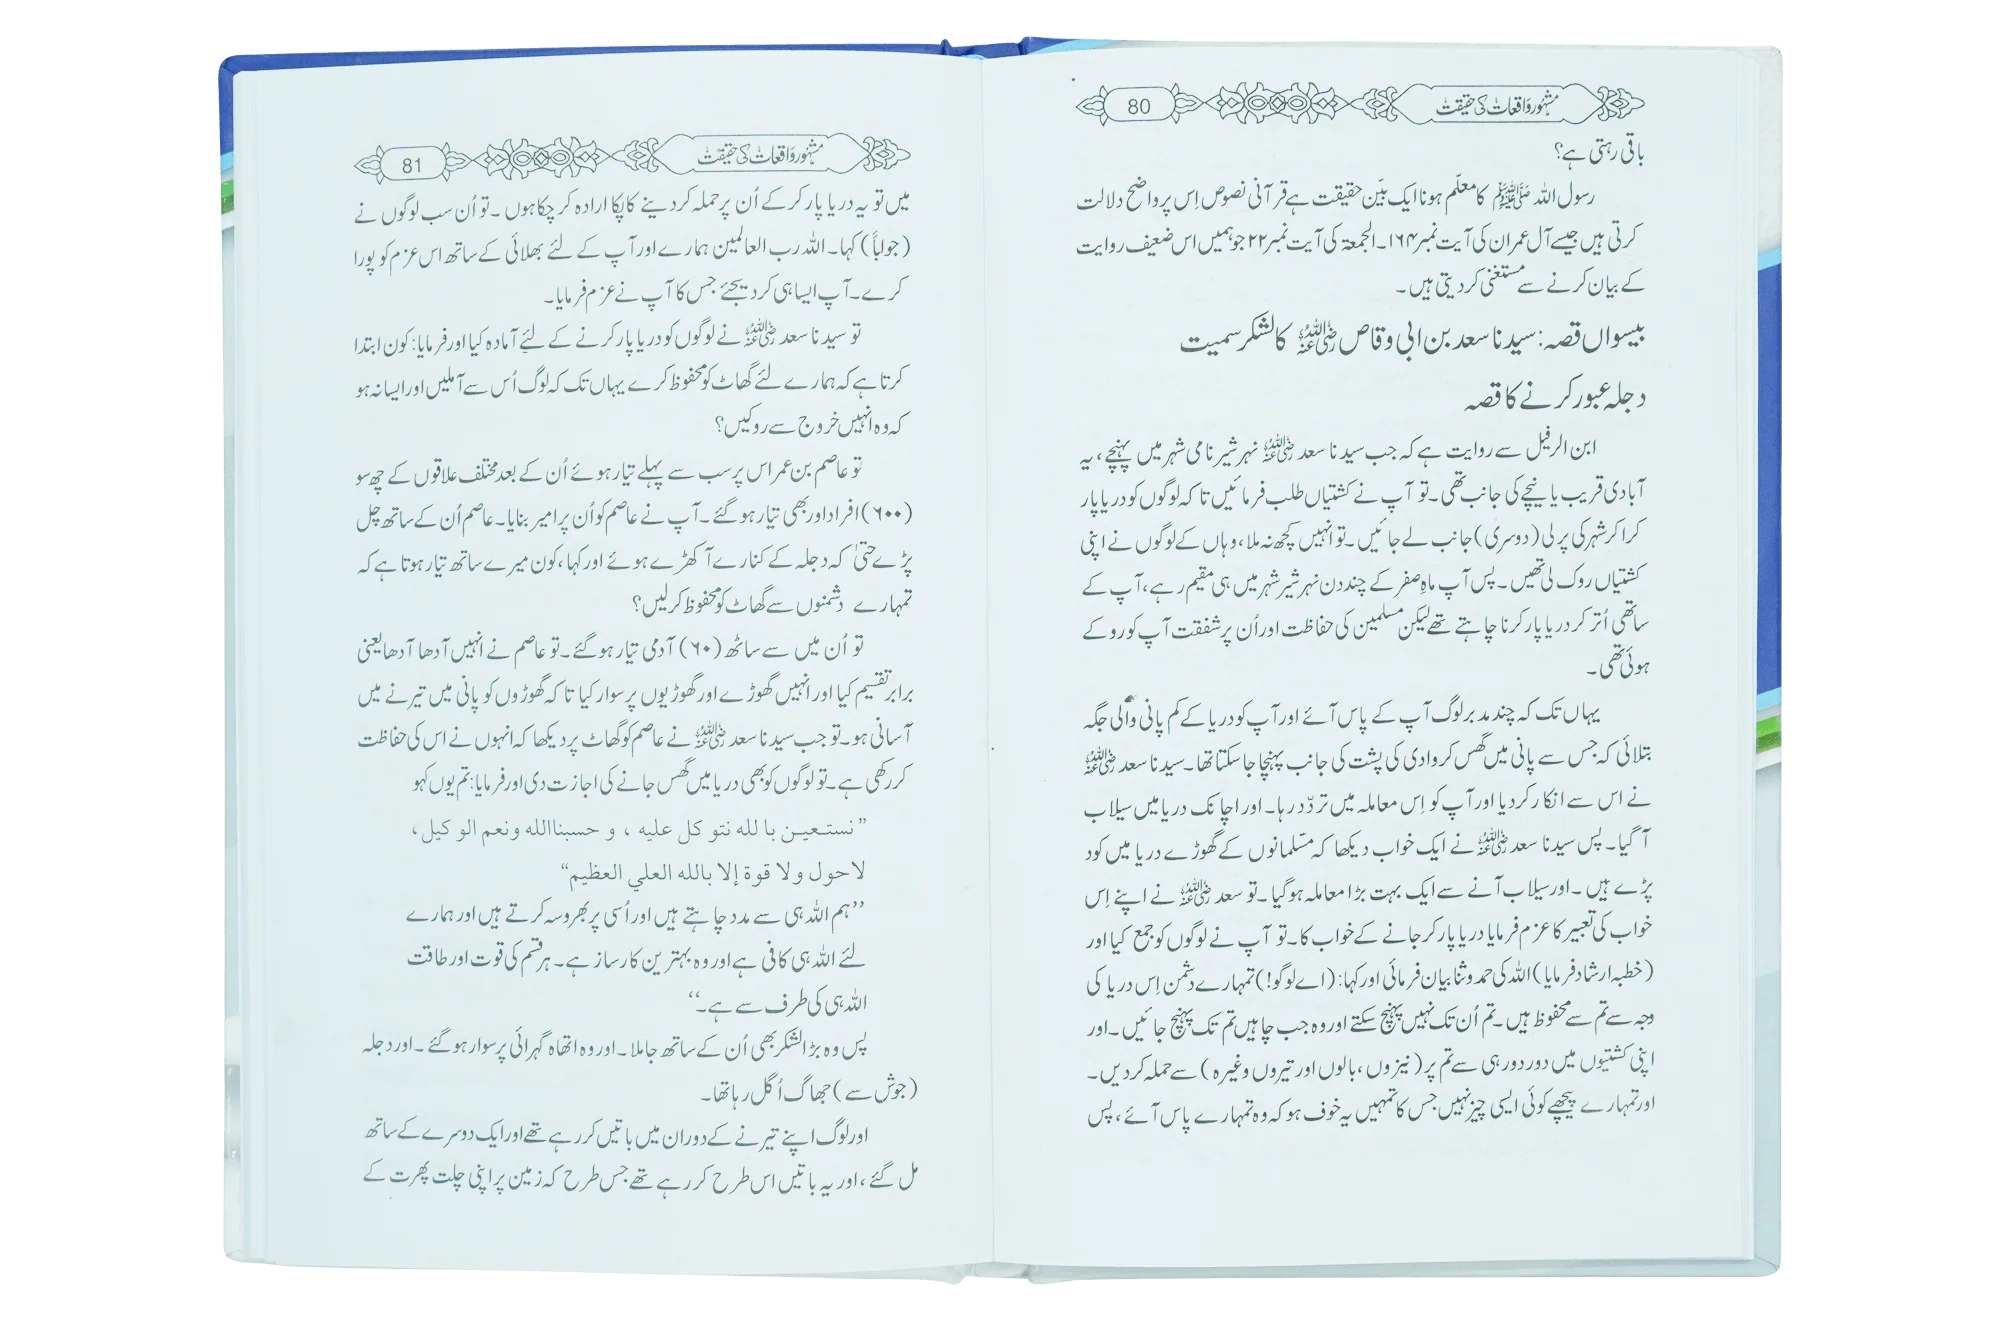 مشہور واقعات کی حقیقت
80
باقی رہتی ہے؟
رسول اللہ ﷺ کا معلّم ہونا ایک بیّن حقیقت ہے قرآنی نصوص اِس پر واضح دلالت
کرتی ہیں جیسے آل عمران کی آیت نمبر ۱۶۴۔ الجمعۃ کی آیت نمبر ۲۲ جو ہمیں اس ضعیف روایت
کے بیان کرنے سے مستغنی کر دیتی ہیں۔
بیسواں قصہ: سیدنا سعد بن ابی وقاص رضی اللہ عنہ کا لشکر سمیت
دجلہ عبور کرنے کا قصہ
ابن الرفیل سے روایت ہے کہ جب سیدنا سعد رضی اللہ عنہ نہر شیر نامی شہر میں پہنچے، یہ
آبادی قریب یا نیچے کی جانب تھی۔ تو آپ نے کشتیاں طلب فرمائیں تاکہ لوگوں کو دریا پار
کرا کر شہر کی پرلی (دوسری) جانب لے جائیں۔ تو انہیں کچھ نہ ملا، وہاں کے لوگوں نے اپنی
کشتیاں روک لی تھیں۔ پس آپ ماہِ صفر کے چند دن نہر شیر شہر میں ہی مقیم رہے، آپ کے
ساتھی اُتر کر دریا پار کرنا چاہتے تھے لیکن مسلمین کی حفاظت اور اُن پر شفقت آپ کو روکے
ہوئی تھی۔
یہاں تک کہ چند مدبر لوگ آپ کے پاس آئے اور آپ کو دریا کے کم پانی والی جگہ
بتلائی کہ جس سے پانی میں گھس کر وادی کی پشت کی جانب پہنچا جا سکتا تھا۔ سیدنا سعد رضی اللہ عنہ
نے اس سے انکار کر دیا اور آپ کو اِس معاملہ میں تردّد رہا۔ اور اچانک دریا میں سیلاب
آ گیا۔ پس سیدنا سعد رضی اللہ عنہ نے ایک خواب دیکھا کہ مسلمانوں کے گھوڑے دریا میں کود
پڑے ہیں۔ اور سیلاب آنے سے ایک بہت بڑا معاملہ ہو گیا۔ تو سعد رضی اللہ عنہ نے اپنے اِس
خواب کی تعبیر کا عزم فرمایا دریا پار کر جانے کے خواب کا۔ تو آپ نے لوگوں کو جمع کیا اور
(خطبہ ارشاد فرمایا) اللہ کی حمد و ثنا بیان فرمائی اور کہا: (اے لوگو!) تمہارے دشمن اِس دریا کی
وجہ سے تم سے محفوظ ہیں۔ تم اُن تک نہیں پہنچ سکتے اور وہ جب چاہیں تم تک پہنچ جائیں۔ اور
اپنی کشتیوں میں دور دور ہی سے تم پر (نیزوں، بالوں اور تیروں وغیرہ) سے حملہ کر دیں۔
اور تمہارے پیچھے کوئی ایسی چیز نہیں جس کا تمہیں یہ خوف ہو کہ وہ تمہارے پاس آئے، پس
مشہور واقعات کی حقیقت
81
میں تو یہ دریا پار کر کے اُن پر حملہ کر دینے کا پکا ارادہ کر چکا ہوں۔ تو اُن سب لوگوں نے
(جواباً) کہا۔ اللہ رب العالمین ہمارے اور آپ کے لئے بھلائی کے ساتھ اس عزم کو پورا
کرے۔ آپ ایسا ہی کر دیجئے جس کا آپ نے عزم فرمایا۔
تو سیدنا سعد رضی اللہ عنہ نے لوگوں کو دریا پار کرنے کے لئے آمادہ کیا اور فرمایا: کون ابتدا
کرتا ہے کہ ہمارے لئے گھاٹ کو محفوظ کرے یہاں تک کہ لوگ اُس سے آملیں اور ایسا نہ ہو
کہ وہ انہیں خروج سے روکیں؟
تو عاصم بن عمر اس پر سب سے پہلے تیار ہوئے اُن کے بعد مختلف علاقوں کے چھ سو
(۶۰۰) افراد اور بھی تیار ہو گئے۔ آپ نے عاصم کو اُن پر امیر بنایا۔ عاصم اُن کے ساتھ چل
پڑے حتیٰ کہ دجلہ کے کنارے آ کھڑے ہوئے اور کہا، کون میرے ساتھ تیار ہوتا ہے کہ
تمہارے دشمنوں سے گھاٹ کو محفوظ کر لیں؟
تو اُن میں سے ساٹھ (۶۰) آدمی تیار ہو گئے۔ تو عاصم نے انہیں آدھا آدھا یعنی
برابر تقسیم کیا اور انہیں گھوڑے اور گھوڑیوں پر سوار کیا تاکہ گھوڑوں کو پانی میں تیرنے میں
آسانی ہو۔ تو جب سیدنا سعد رضی اللہ عنہ نے عاصم کو گھاٹ پر دیکھا کہ انہوں نے اس کی حفاظت
کر رکھی ہے۔ تو لوگوں کو بھی دریا میں گھس جانے کی اجازت دی اور فرمایا: تم یوں کہو
”نستعین با لله نتو کل علیه ، و حسبنا الله ونعم الو کیل،
لا حول ولا قوة إلا بالله العلي العظیم“
’’ہم اللہ ہی سے مدد چاہتے ہیں اور اُسی پر بھروسہ کرتے ہیں اور ہمارے
لئے اللہ ہی کافی ہے اور وہ بہترین کارساز ہے۔ ہر قسم کی قوت اور طاقت
اللہ ہی کی طرف سے ہے۔‘‘
پس وہ بڑا لشکر بھی اُن کے ساتھ جا ملا۔ اور وہ اتھاہ گہرائی پر سوار ہو گئے۔ اور دجلہ
(جوش سے) جھاگ اُگل رہا تھا۔
اور لوگ اپنے تیرنے کے دوران میں باتیں کر رہے تھے اور ایک دوسرے کے ساتھ
مل گئے، اور یہ باتیں اس طرح کر رہے تھے جس طرح کہ زمین پر اپنی چلت پھرت کے